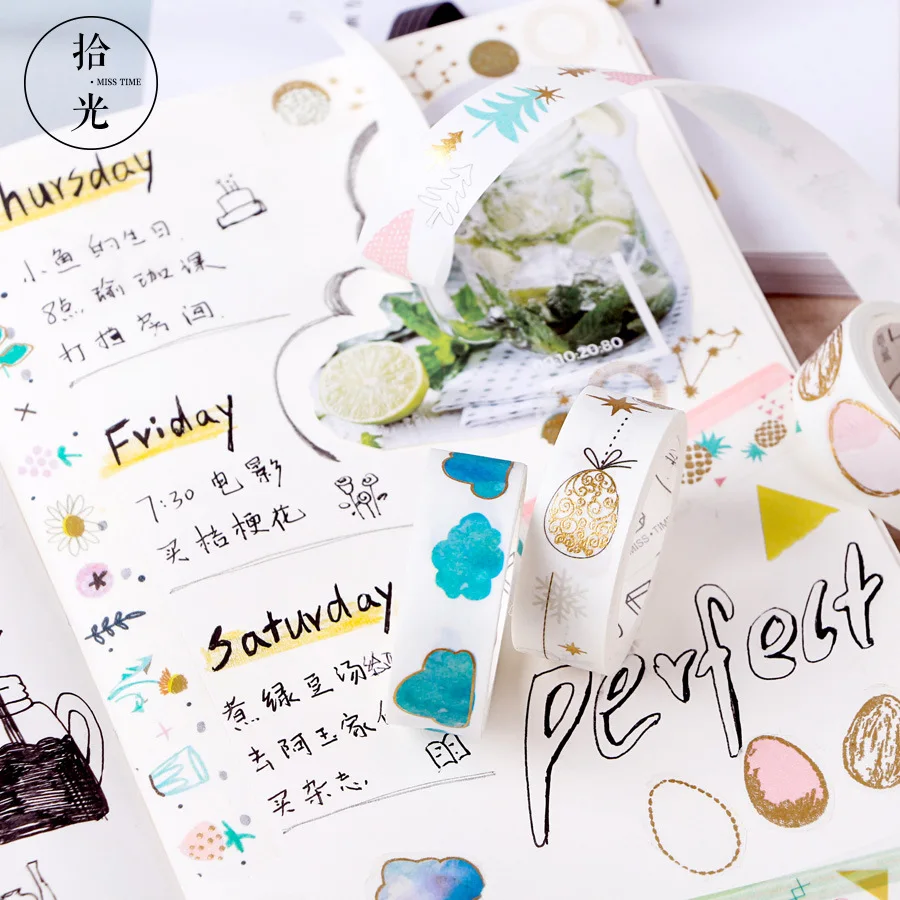 拾
· MISS TIME
光
hursday
小鱼的生日.
8点 瑜珈课
打扫房间.
Friday
7:30 电影
买桔梗花
Saturday
煮绿豆汤
去阿玉家
买杂志.
10:20:80
MISS·TIM
perfect